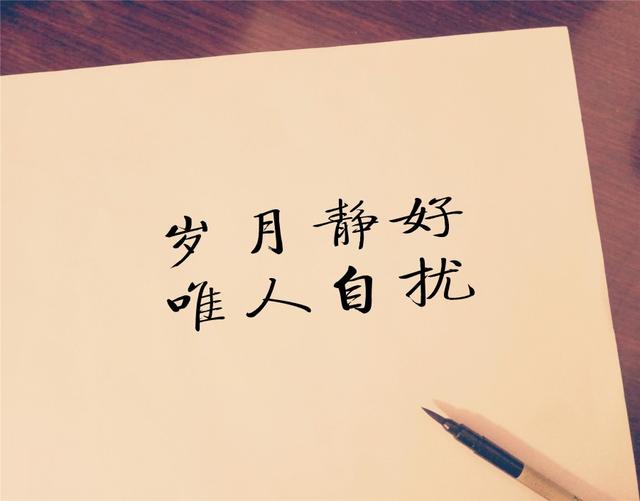 岁月静好
唯人自扰